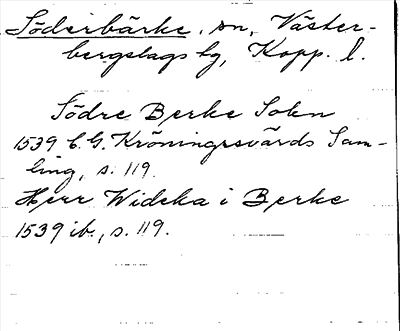 Söderbärke, sn, Väster-
bergslags bg, Kopp. l.
Södre Berke Sokn
1539 C. G. Kröningssvärds Sam-
ling, s. 119.
Herr Wideka i Berke
1539 ib., s. 119.